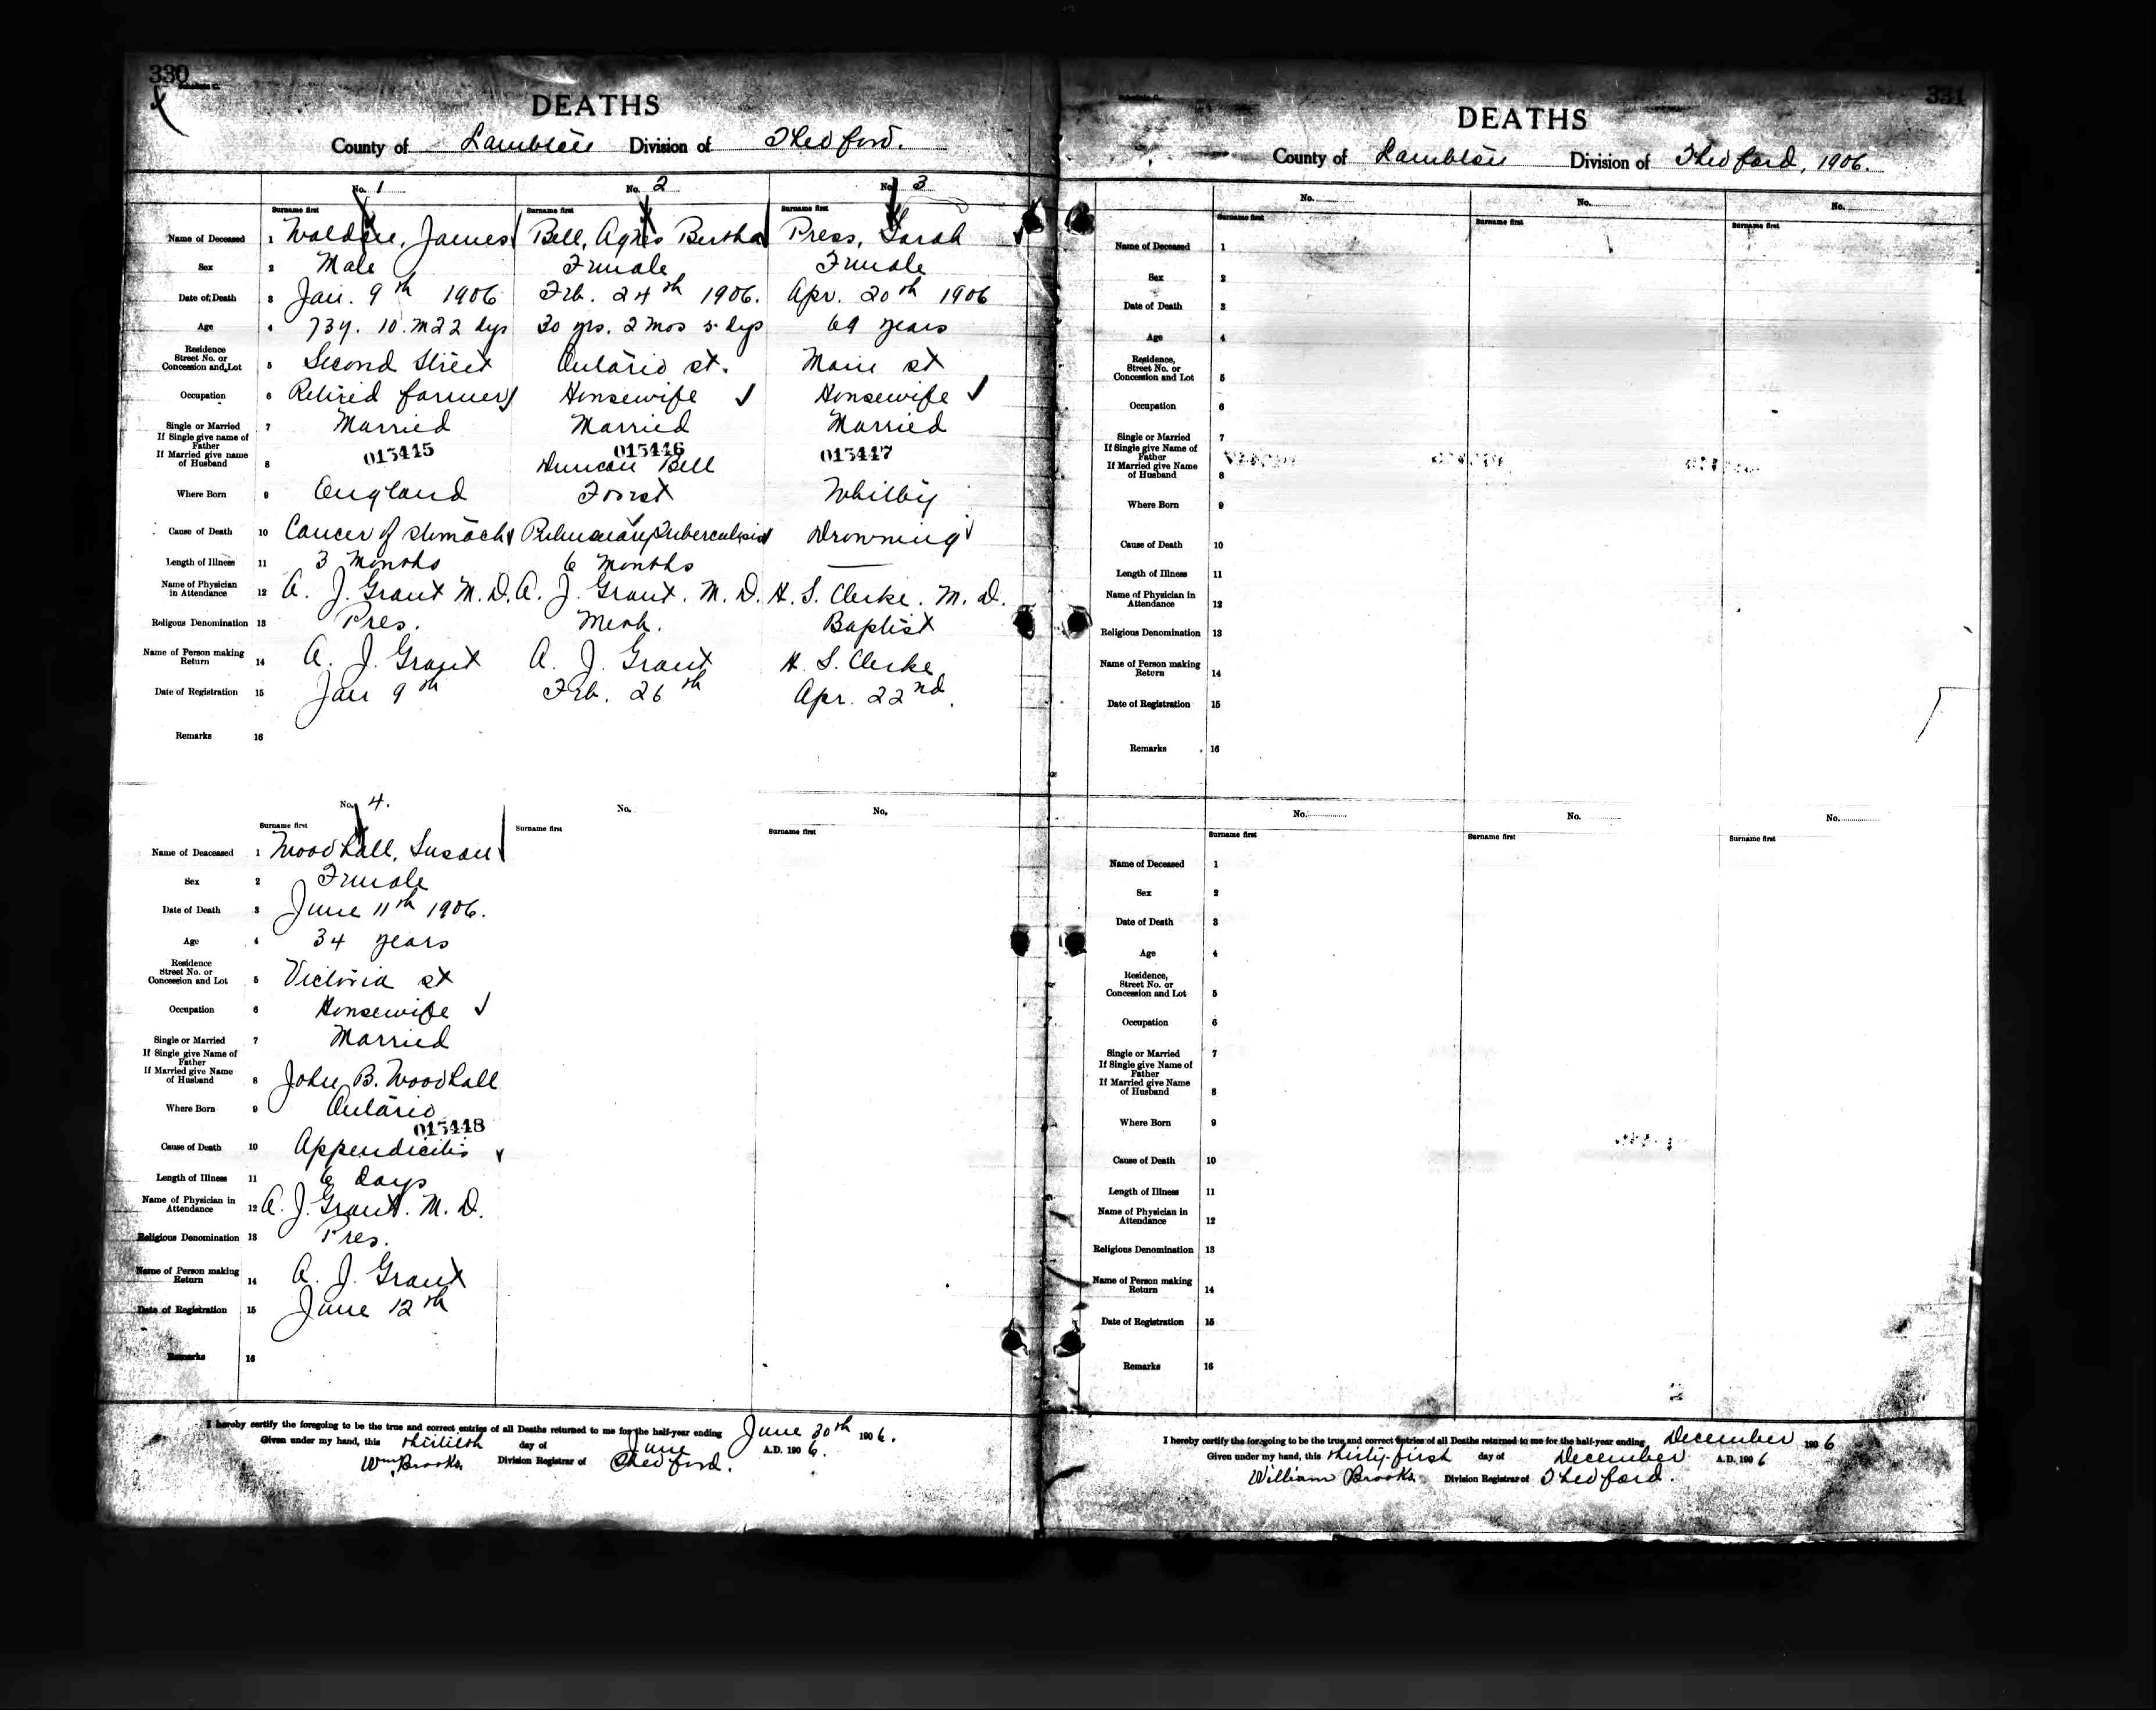 330
DEATHS
County of Lambton Division of Thedford.
No. 1 No. 2 No. 3
Surname first Surname first Surname first
Name of Deceased 1 James Bell, Agnes Bertha Press, Sarah
Sex 2 Male Female Female
Date of Death 3 Jan. 9th 1906 Feb. 24th 1906. Apr. 20th 1906
Age 4 73y. 10.m 22 dys 30 yrs. 2 mos 5 dys 69 years
Residence
Street No. or
Concession and Lot 5 Second Street Ontario st. Main st
Occupation 6 Retired farmer Housewife Housewife
Single or Married 7 Married Married Married
If Single give name of
Father
015445 015446 015447
If Married give name
of Husband 8 Duncan Bell
Where Born 9 England Forest Whitby
Cause of Death 10 Cancer of stomach Pulmonary Tuberculosis Drowning
Length of Illness 11 3 Months 6 Months —
Name of Physician
in Attendance 12 A. J. Grant M.D. A. J. Grant. M. D. H. S. Clerke. M. D.
Religous Denomination 13 Pres. Meth. Baptist
Name of Person making
Return 14 A. J. Grant A. J. Grant H. S. Clerke
Date of Registration 15 Jan 9th Feb. 26th Apr. 22nd.
Remarks 16
No. 4. No. No.
Surname first Surname first Surname first
Name of Deaceased 1 Woodhall, Susan
Sex 2 Female
Date of Death 3 June 11th 1906.
Age 4 34 years
Residence
Street No. or
Concession and Lot 5 Victoria st
Occupation 6 Housewife
Single or Married 7 Married
If Single give Name of
Father
If Married give Name
of Husband 8 John B. Woodhall
Where Born 9 Ontario
015448
Cause of Death 10 Appendicitis
Length of Illness 11 6 days
Name of Physician in
Attendance 12 A. J. Grant. M. D.
Religious Denomination 13 Pres.
Name of Person making
Return 14 A. J. Grant
Date of Registration 15 June 12th
Remarks 16
I hereby certify the foregoing to be the true and correct entries of all Deaths returned to me for the half-year ending June 30th 1906.
Given under my hand, this thirtieth day of June A.D. 1906.
Wm Brooks, Division Registrar of Thedford.
331
DEATHS
County of Lambton Division of Thedford, 1906.
No. No. No.
Surname first Surname first Surname first
Name of Deceased 1
Sex 2
Date of Death 3
Age 4
Residence,
Street No. or
Concession and Lot 5
Occupation 6
Single or Married 7
If Single give Name of
Father
If Married give Name
of Husband 8
Where Born 9
Cause of Death 10
Length of Illness 11
Name of Physician in
Attendance 12
Religious Denomination 13
Name of Person making
Return 14
Date of Registration 15
Remarks 16
No. No. No.
Surname first Surname first Surname first
Name of Deceased 1
Sex 2
Date of Death 3
Age 4
Residence,
Street No. or
Concession and Lot 5
Occupation 6
Single or Married 7
If Single give Name of
Father
If Married give Name
of Husband 8
Where Born 9
Cause of Death 10
Length of Illness 11
Name of Physician in
Attendance 12
Religious Denomination 13
Name of Person making
Return 14
Date of Registration 15
Remarks 16
I hereby certify the foregoing to be the true and correct entries of all Deaths returned to me for the half-year ending December 1906
Given under my hand, this thirty-first day of December A.D. 1906
William Brooks Division Registrar of Thedford.